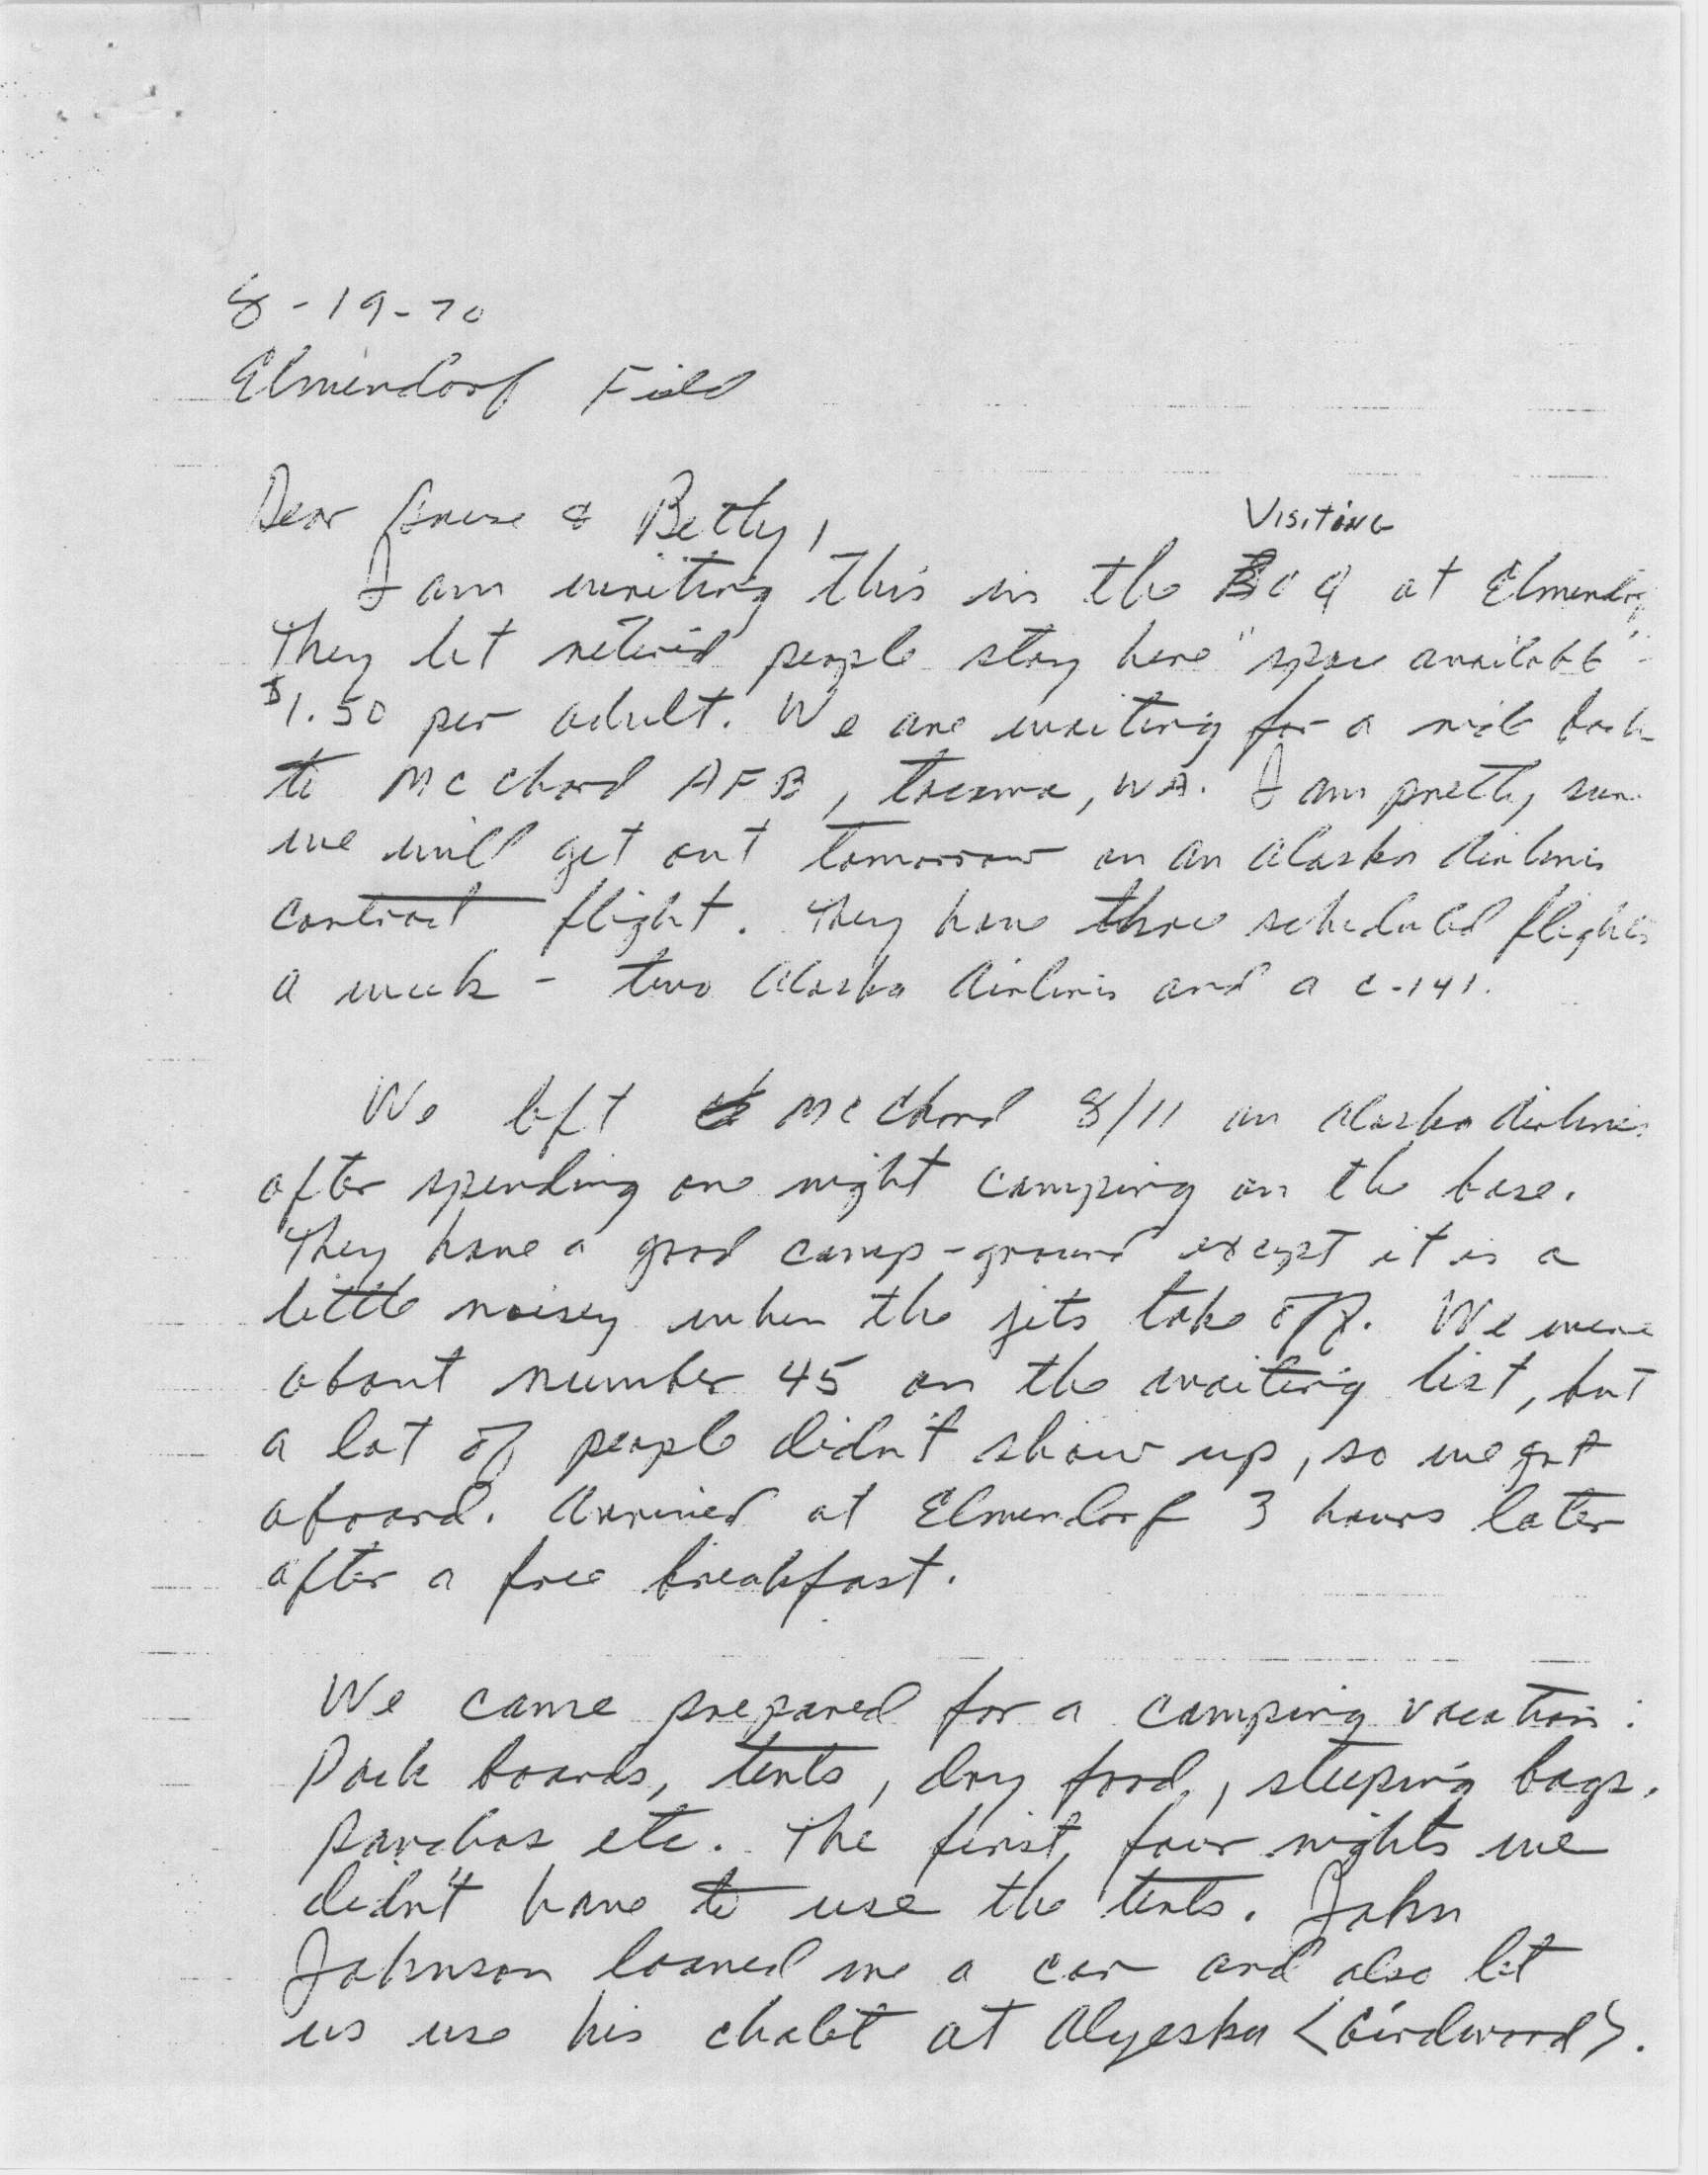 8-19-70
Elmendorf Field
Dear & Betty,
Visiting
I am writing this in the BOQ at Elmendorf
They let retired people stay here "space available" -
$1.50 per adult. We are waiting for a ride back
to McChord AFB, Tacoma, WA. I am pretty sure
we will get out tomorrow on an Alaska Airlines
contract flight. They have three scheduled flights
a week - two Alaska Airlines and a C-141.
We left McChord 8/11 on Alaska Airlines
after spending one night camping on the base.
They have a good camp-ground except it is a
little noisey when the jets take off. We were
about number 45 on the waiting list, but
a lot of people didn't show up, so we got
aboard. Arrived at Elmendorf 3 hours later
after a free breakfast.
We came prepared for a camping vacation:
Pack boards, tents, dry food, sleeping bags,
ponchos etc. The first four nights we
didn't have to use the tents. John
Johnson loaned me a car and also let
us use his chalet at Alyeska <Girdwood>.